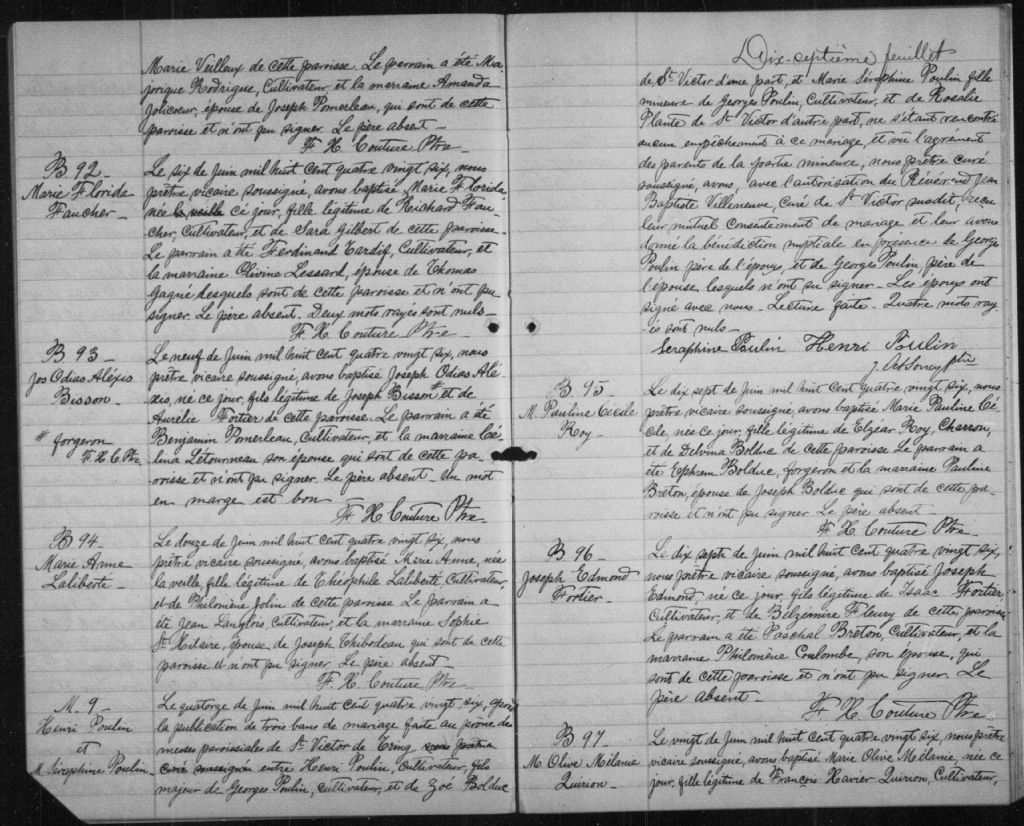 Marie Veilleux de cette paroisse. Le parrain a été Ma-
jorique Rodrigue, Cultivateur, et la marraine Amanda
Jolicoeur, épouse de Joseph Pomerleau, qui sont de cette
paroisse et n'ont pu signer. Le père absent —
F. X. Couture Ptre
B 92 —
Marie Florida
Faucher —
Le six de Juin mil huit cent quatre vingt six, nous
prêtre vicaire soussigné, avons baptisé Marie Florida
née la veille cé jour, fille légitime de Richard Fau-
cher, Cultivateur, et de Sara Gilbert de cette paroisse
Le parrain a été Ferdinand Tardif, Cultivateur, et
la marraine Olivine Lessard, épouse de Thomas
Gagné lesquels sont de cette paroisse et n'ont pu
signer. Le père absent. Deux mots rayés sont nuls —
F. X. Couture Ptre —
B 93 —
Jos Odias Aléxis
Bisson —
# forgeron
F. X. C. Ptre
Le neuf de Juin mil huit cent quatre vingt six, nous
prêtre vicaire soussigné, avons baptisé Joseph Odias Alé-
xis, né ce jour, fils légitime de Joseph Bisson # et de
Aurélie Fortier de cette paroisse. Le parrain a été
Benjamin Pomerleau, Cultivateur, et la marraine Cé-
lina Létourneau son épouse qui sont de cette pa-
roisse et n'ont pu signer. Le père absent. Un mot
en marge est bon
F. X. Couture Ptre
B 94 —
Marie Anne
Laliberté —
Le douze de Juin mil huit cent quatre vingt six nous
prêtre vicaire soussigné, avons baptisé Marie Anne, née
la veille, fille légitime de Théophile Laliberté Cultivateur,
et de Philomène Jolin de cette paroisse Le parrain a
été Jean Langlois Cultivateur, et la marraine Sophie
St. Hilaire, épouse de Joseph Thibodeau qui sont de cette
paroisse et n'ont pu signer. Le père absent —
F. X. Couture Ptre —
M. 9 —
Henri Poulin
et
M. Séraphine Poulin
Le quatorze de Juin mil huit cent quatre vingt six, après
la publication de trois bans de mariage faite au prône de
messes paroissiales de St. Victor de Tring nous prêtre
curé soussigné entre Henri Poulin, Cultivateur, fils
majeur de Georges Poulin, cultivateur, et de Zoé Bolduc
Dix-septième feuillet
de St Victor d'une part, et Marie Séraphine Poulin fille
mineure de Georges Poulin, Cultivateur, et de Rosalie
Plante de St Victor d'autre part, ne s'étant rencontré
aucun empêchement à ce mariage, et vu l'agrément
des parents de la partie mineure, nous prêtre curé
soussigné, avons, avec l'autorisation du Révérend Jean
Baptiste Villeneuve, Curé de St Victor susdit, reçu
leur mutuel Consentement de mariage et leur avons
donné la bénédiction nuptiale en présence de George
Poulin père de l'époux, et de Georges Poulin, père de
l'épouse, lesquels n'ont su signer. Les époux ont
signé avec nous. Lecture faite. Quatre mots ray-
és sont nuls —
Seraphine Poulin Henri Poulin
B 95 —
M. Pauline Cécile
Roy —
Le dix sept de Juin mil huit cent quatre vingt six, nous
prêtre vicaire soussigné, avons baptisé Marie Pauline Cé-
cile, née ce jour, fille légitime de Elzéar Roy, Charron,
et de Delvina Bolduc de cette paroisse Le parrain a
été Ephrem Bolduc, forgeron et la marraine Pauline
Breton, épouse de Joseph Bolduc qui sont de cette pa-
roisse et n'ont pu signer Le père absent —
F. X. Couture Ptre
B 96 —
Joseph Edmond
Fortier —
Le dix sept de Juin mil huit cent quatre vingt six,
nous prêtre vicaire soussigné, avons baptisé Joseph
Edmond, né ce jour, fils légitime de Isaac Fortier
Cultivateur, et de Belzémire Fleury de cette paroisse
Le parrain a été Paschal Breton, Cultivateur, et la
marraine Philomène Coulombe, son épouse, qui
sont de cette paroisse et n'ont pu signer. Le
père absent —
F. X. Couture Ptre
B 97 —
M Olive Mélanie
Quirion —
Le vingt de Juin mil huit cent quatre vingt six, nous prêtre
vicaire soussigné, avons baptisé Marie Olive Mélanie, née ce
jour, fille légitime de François Xavier Quirion, Cultivateur,